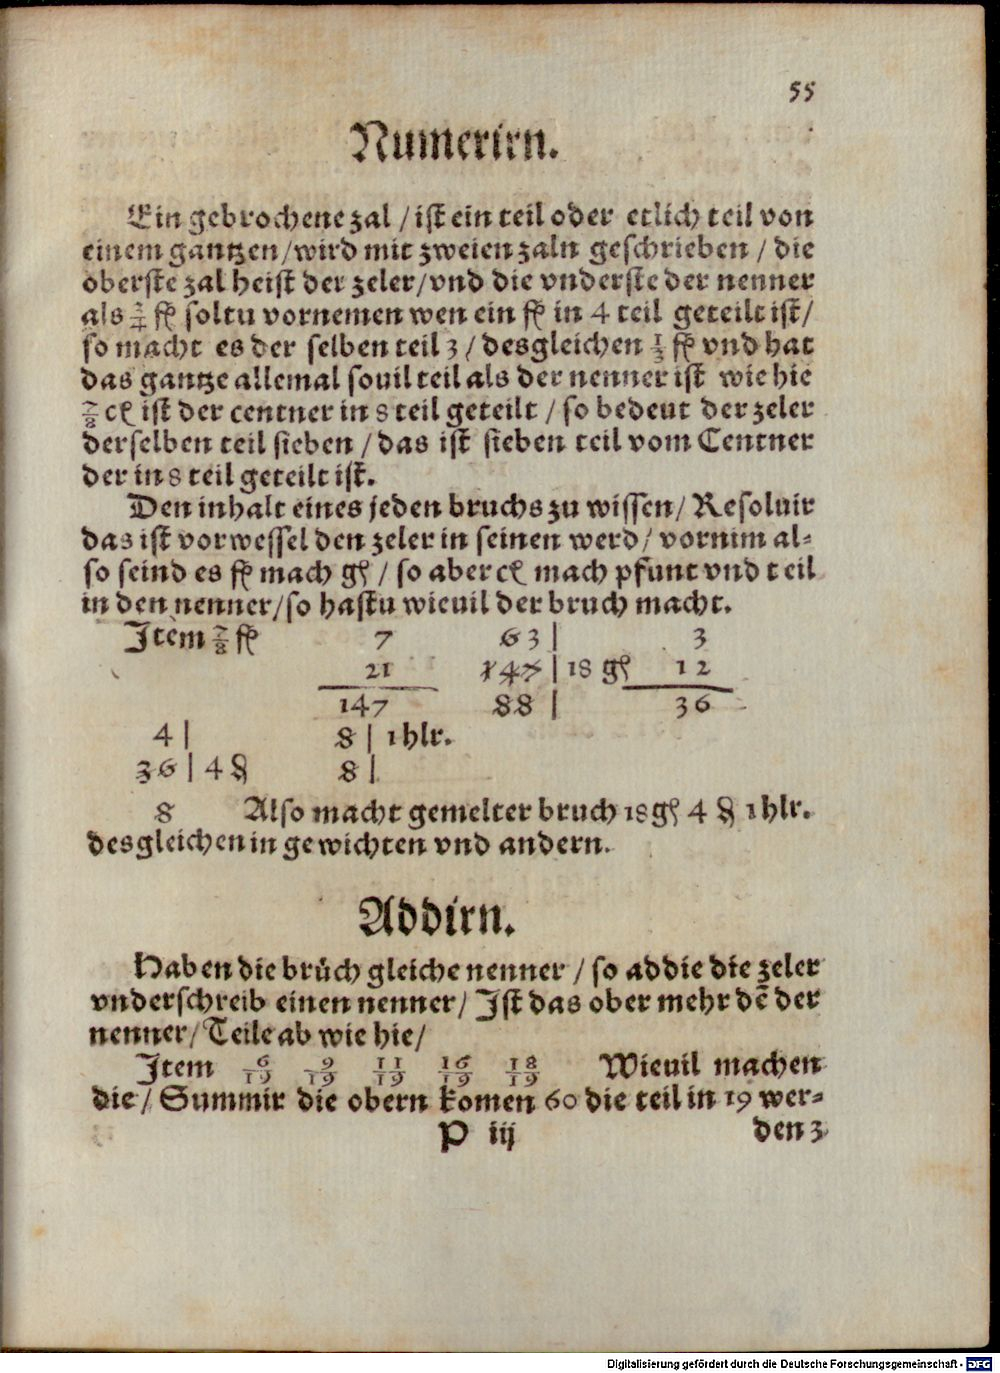 55
Numerirn.
Ein gebrochene zal / ist ein teil oder etlich teil von
einem gantzen / wird mit zweien zaln geschrieben / die
oberste zal heist der zeler / vnd die vnderste der nenner
als 3/4 fl soltu vornemen wen ein fl in 4 teil geteilt ist /
so macht es der selben teil 3 / desgleichen 1/3 fl vnd hat
das gantze allemal souil teil als der nenner ist wie hie
7/8 ct ist der centner in 8 teil geteilt / so bedeut der zeler
derselben teil sieben / das ist sieben teil vom Centner
der in 8 teil geteilt ist.
Den inhalt eines jeden bruchs zu wissen / Resoluir
das ist vorwessel den zeler in seinen werd / vornim al-
so seind es fl mach gl / so aber ct mach pfunt vnd teil
in den nenner / so hastu wieuil der bruch macht.
Item 7/8 fl 7 63 | 3
21 147 | 18 gl 12
147 88 | 36
4 | 8 | 1 hlr.
36 | 4 ₰ 8 |
8 Also macht gemelter bruch 18 gl 4 ₰ 1 hlr.
desgleichen in gewichten vnd andern.
Addirn.
Haben die brüch gleiche nenner / so addie die zeler
vnderschreib einen nenner / Ist das ober mehr dē der
nenner / Teile ab wie hie /
Item 6/19 9/19 11/19 16/19 18/19 Wieuil machen
die / Summir die obern komen 60 die teil in 19 wer-
P iij den 3
Digitalisierung gefördert durch die Deutsche Forschungsgemeinschaft - DFG